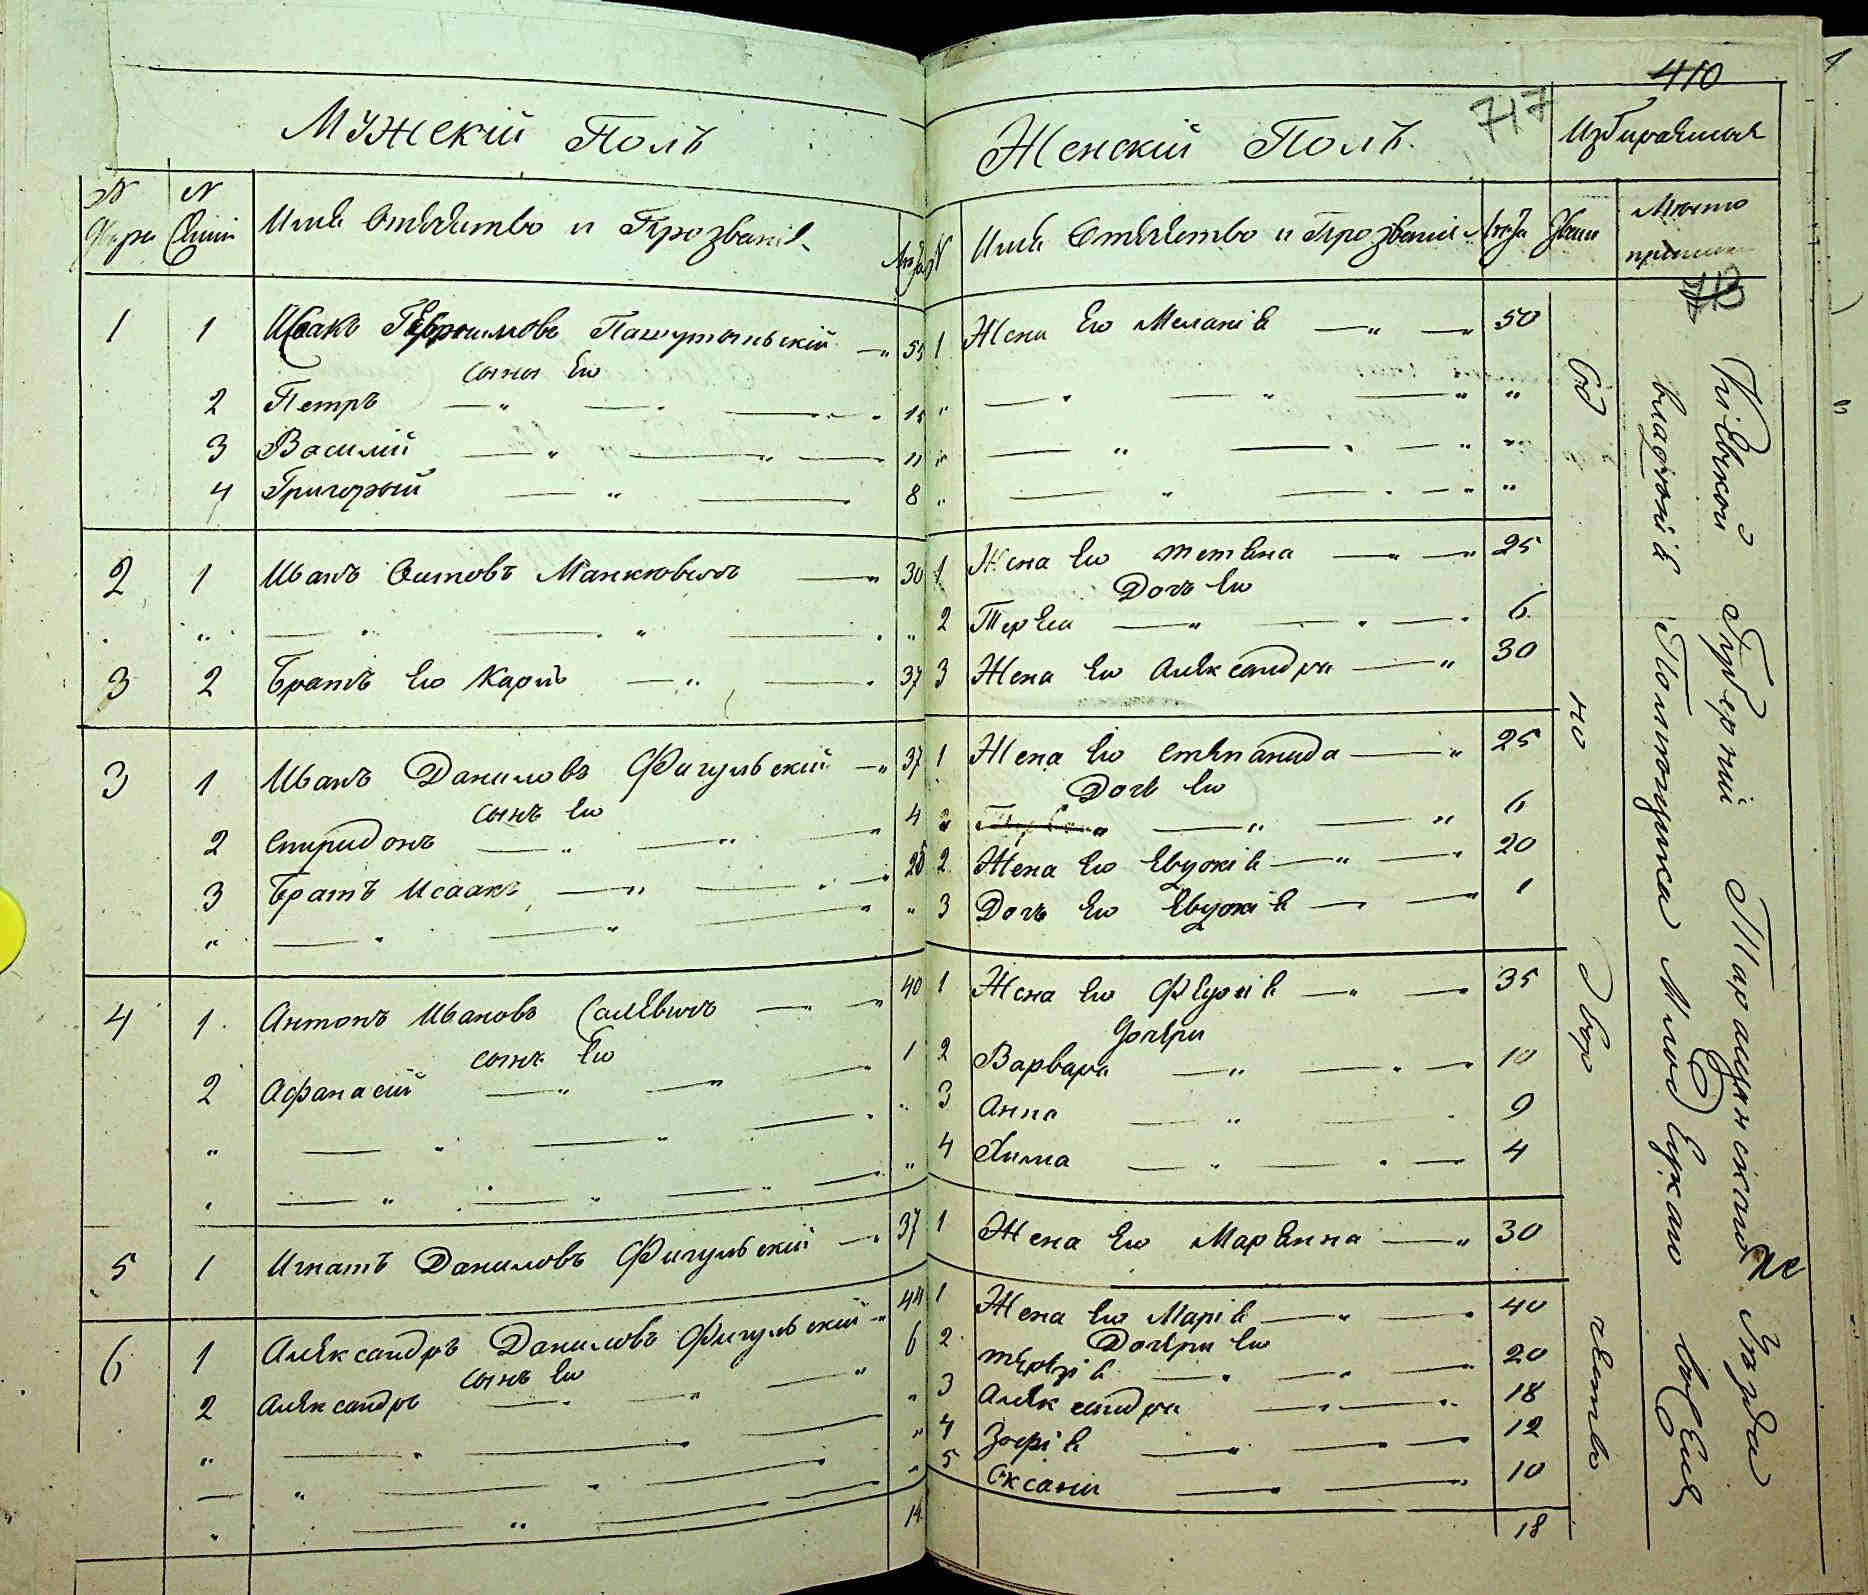 410
717
Мужскій Полъ
Женскій Полъ.
№
№
Имя Отчество и Прозваніе
Лѣта
№
Имя Отчество и Прозваніе
Лѣта
1 1 Исакъ Пашутинскій — 55
сыны Его
2 Петръ 15
3 Василій 11
4 Григорый 8
1 Жена Его Меланія — 50
2 1 Иванъ Манкювичъ — 30
3 2 Братъ Его Карпъ 37
1 Жена Его Тетяна — 25
Дочь Его
2 6
3 Жена Его Александра — 30
3 1 Иванъ Даниловъ Фигульскій 37
сынъ Его
2 Спиридонъ 4
3 Братъ Исаакъ
1 Жена Его Степанида — 25
Дочь Его
6
2 Жена Его Евдокія — 20
3 Дочь Его Евдокія — 1
4 1 Антонъ Ивановъ Салевичъ — 40
сынъ Его
2 Афанасій 1
1 Жена Его — 35
Дочери
2 Варвара 10
3 Анна 9
4 Химма 4
5 1 Игнатъ Даниловъ Фигульскій — 37
1 Жена Его Маріянна — 30
6 1 Александръ Даниловъ Фигульскій 44
сынъ Его
2 Александръ 6
14
1 Жена Его Марія — 40
Дочери Его
2 Терезія 20
3 Александра 18
4 Зофія 12
5 Оксана 10
18
Од но двор чество
Кіевской Губерніи Таращанскаго уѣзда
владѣнія Помѣщика